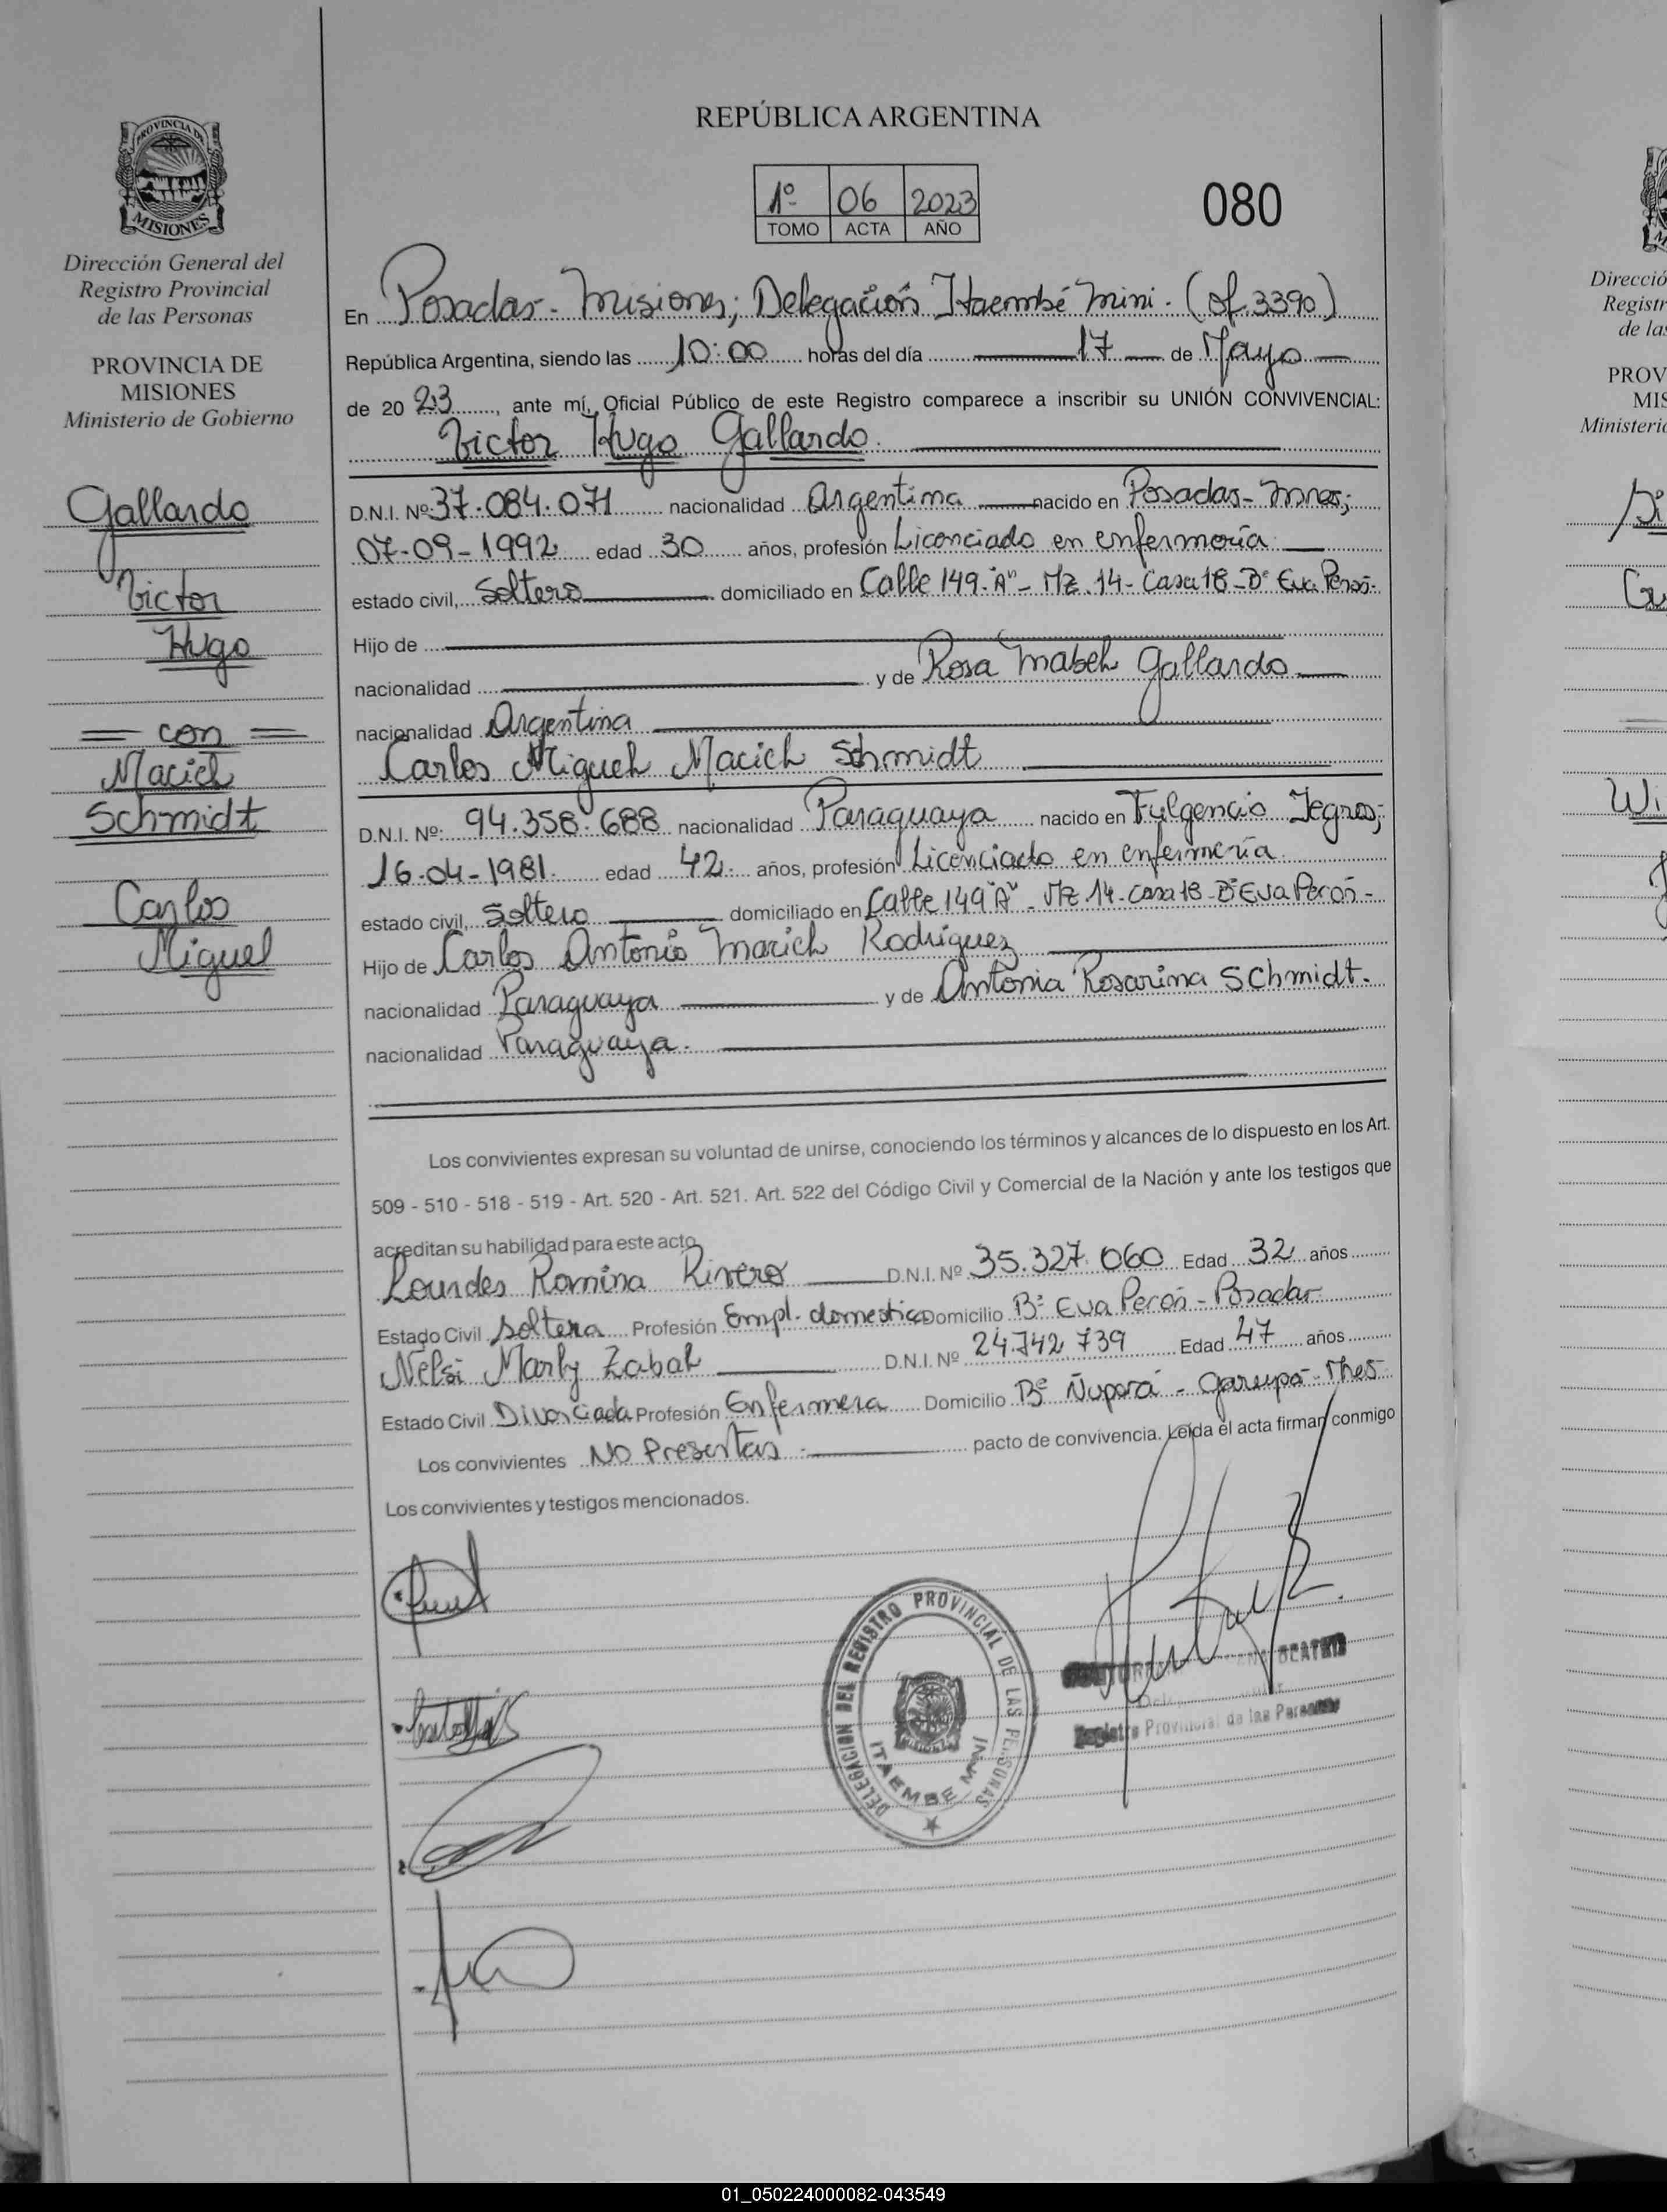 REPÚBLICA ARGENTINA
1º 06 2023
TOMO ACTA AÑO
080
PROVINCIA DE
MISIONES
Dirección General del
Registro Provincial
de las Personas
PROVINCIA DE
MISIONES
Ministerio de Gobierno
Gallardo
Victor
Hugo
= con =
Maciel
Schmidt
Carlos
Miguel
En Posadas - Misiones; Delegación Itaembé Mini. (of. 3390)
República Argentina, siendo las 10:00 horas del día 17 de Mayo
de 2023, ante mí, Oficial Público de este Registro comparece a inscribir su UNIÓN CONVIVENCIAL:
Victor Hugo Gallardo.
D.N.I. Nº 37.084.071 nacionalidad Argentina nacido en Posadas - Mnes;
07-09-1992 edad 30 años, profesión Licenciado en enfermería
estado civil, Soltero domiciliado en Calle 149 "A" - Mz. 14 - Casa 18 - Bº Eva Perón.
Hijo de
nacionalidad y de Rosa Mabel Gallardo
nacionalidad Argentina
Carlos Miguel Maciel Schmidt
D.N.I. Nº: 94.358.688 nacionalidad Paraguaya nacido en Fulgencio Yegros;
16-04-1981. edad 42. años, profesión Licenciado en enfermería.
estado civil, Soltero domiciliado en Calle 149 "A" - Mz 14 - casa 18 - Bº Eva Perón -
Hijo de Carlos Antonio Maciel Rodriguez
nacionalidad Paraguaya y de Antonia Rosarina Schmidt.
nacionalidad Paraguaya.
Los convivientes expresan su voluntad de unirse, conociendo los términos y alcances de lo dispuesto en los Art.
509 - 510 - 518 - 519 - Art. 520 - Art. 521. Art. 522 del Código Civil y Comercial de la Nación y ante los testigos que
acreditan su habilidad para este acto
Lourdes Romina Rivero D.N.I. Nº 35.327.060 Edad 32 años
Estado Civil Soltera Profesión Empl. domestica Domicilio Bº Eva Perón - Posadas
Nelsi Marly Zabal D.N.I. Nº 24.742 739 Edad 47 años
Estado Civil Divorciada Profesión Enfermera Domicilio Bº Ñuporá - Garupá - Mnes
Los convivientes No Presentan. pacto de convivencia. Leída el acta firman conmigo
Los convivientes y testigos mencionados.
DELEGACION DEL REGISTRO PROVINCIAL DE LAS PERSONAS
ITAEMBE MINI
BEATRIZ
Registro Provincial de las Personas
Direcció
Registr
de las
PROV
MIS
Ministerio
01_050224000082-043549